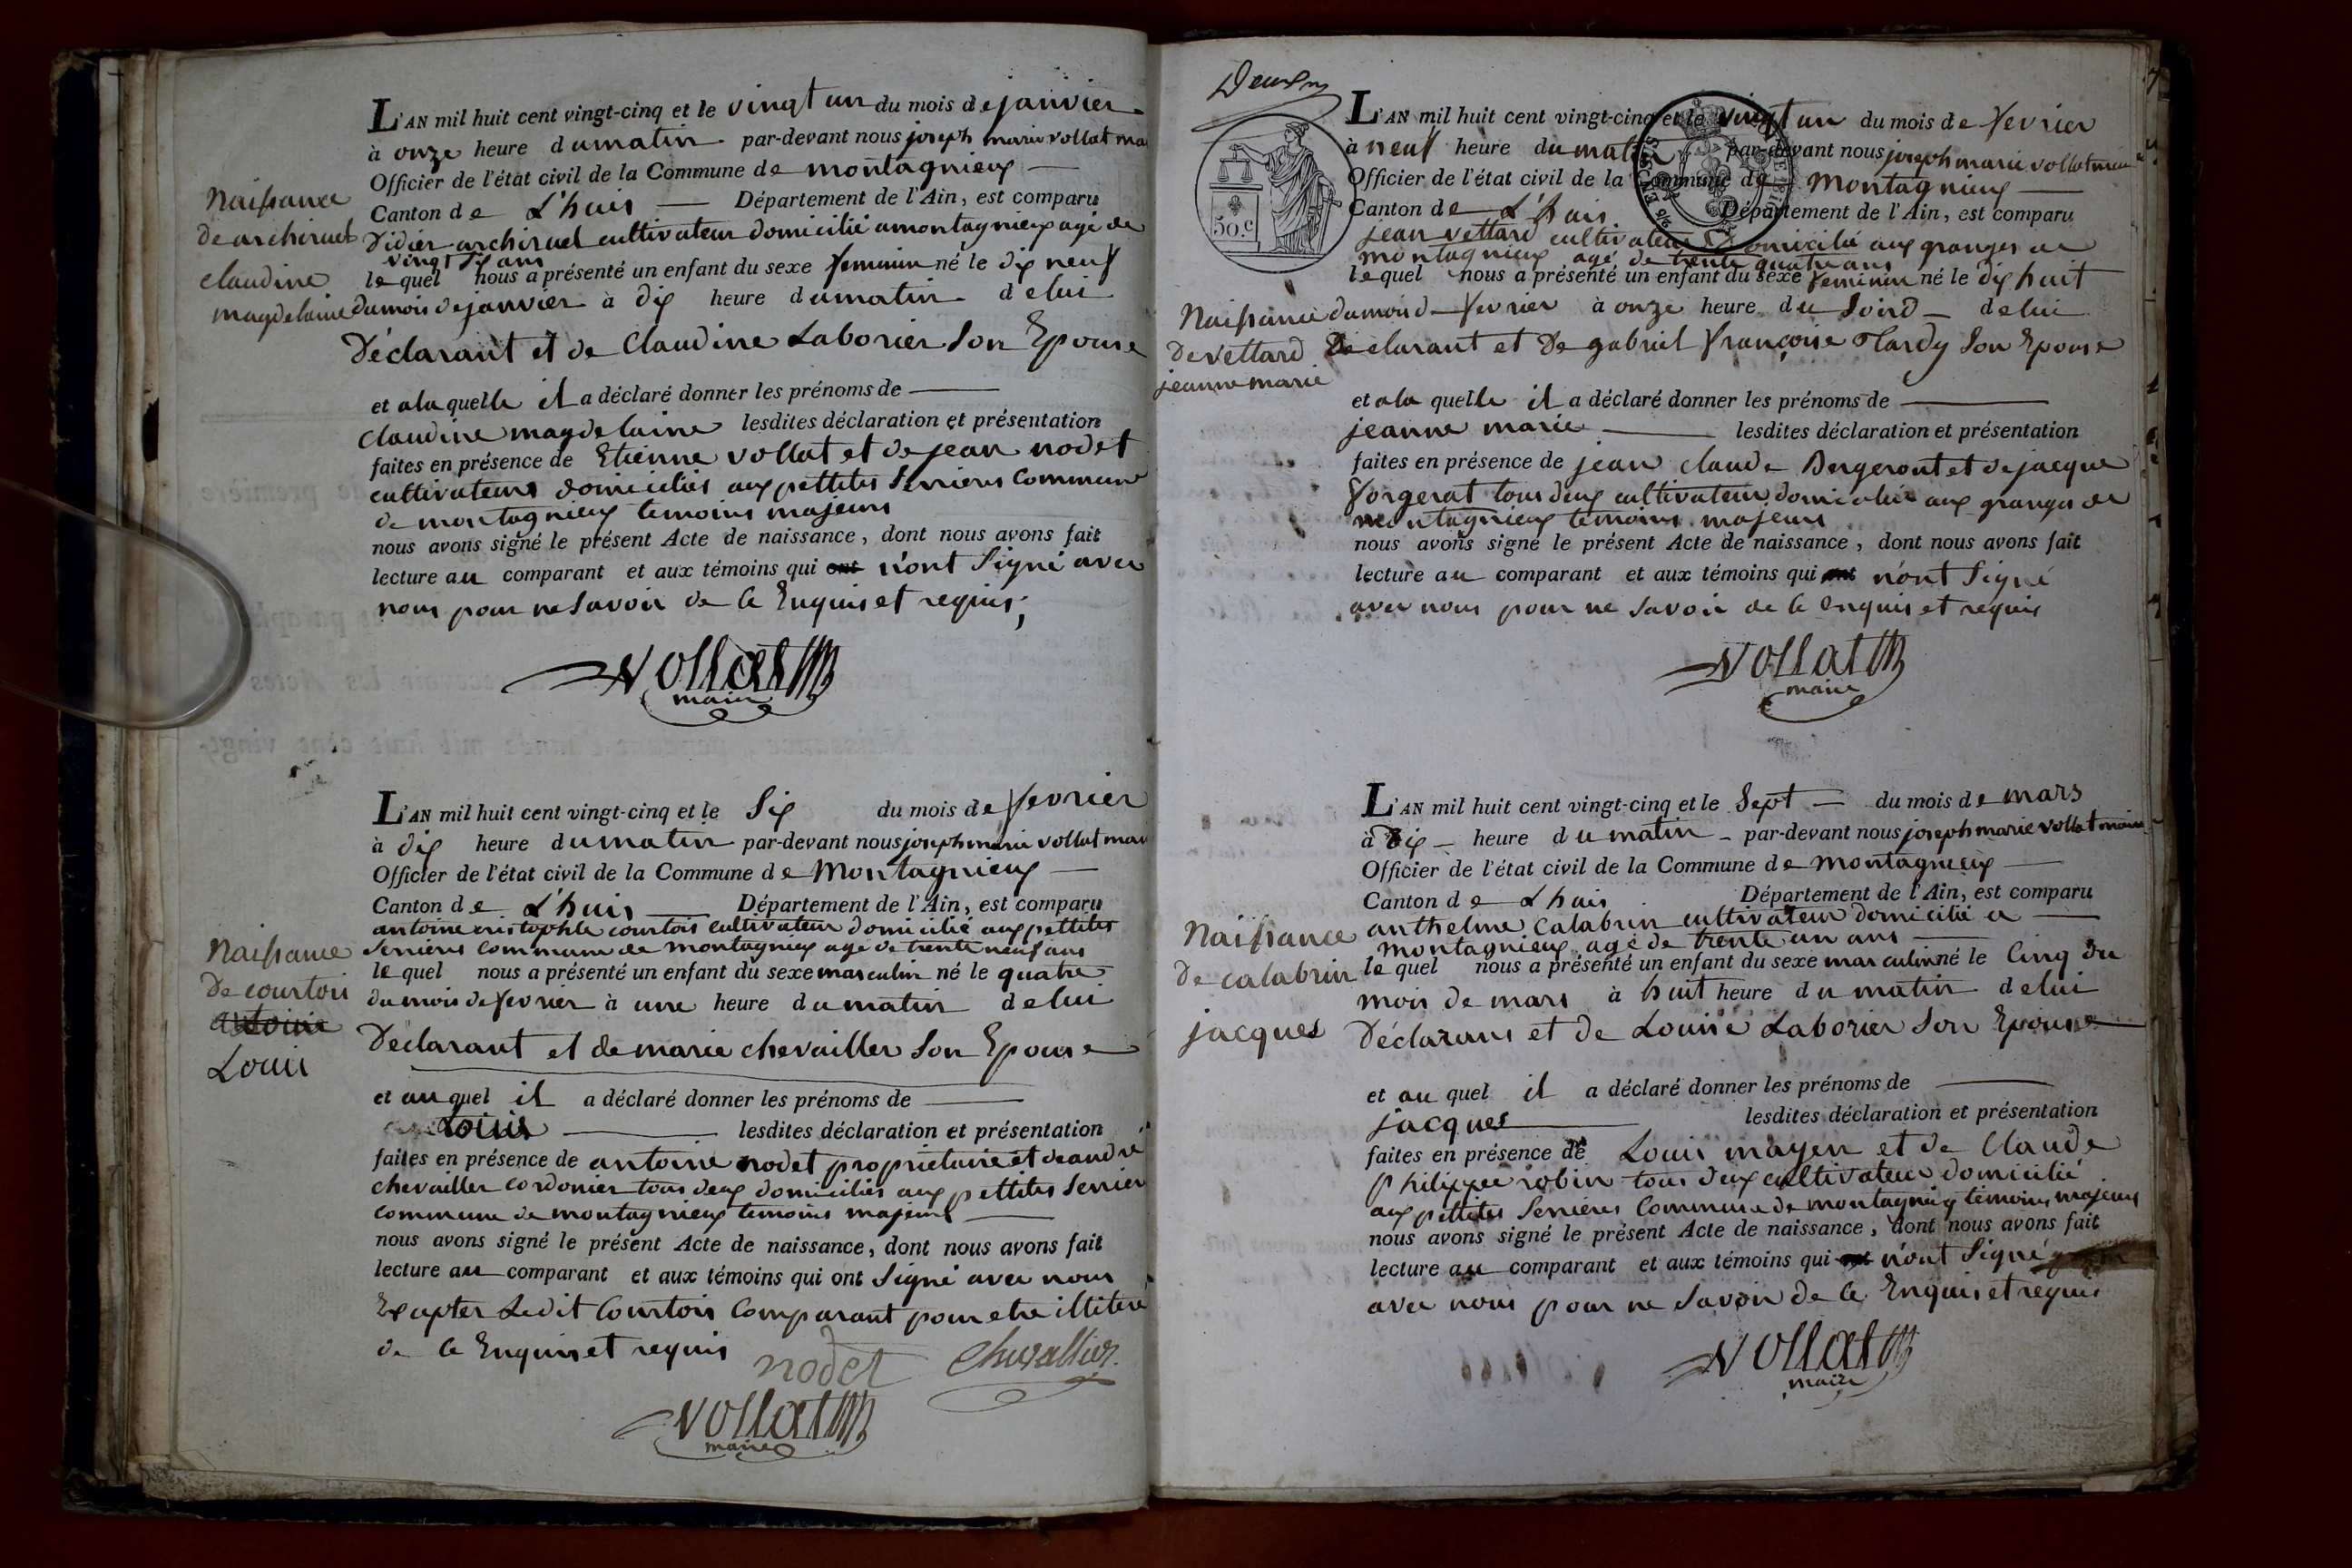 Naissance
de archiruel
claudine
magdelaine
L'AN mil huit cent vingt-cinq et le vingt un du mois de janvier
à onze heure du matin par-devant nous joseph marie vollat mai
Officier de l'état civil de la Commune de montagnieux
Canton de L'huis Département de l'Ain, est comparu
Didier archiruel cultivateur domicilié a montagnieux agé de
vingt six ans
lequel nous a présenté un enfant du sexe feminin né le dix neuf
du mois de janvier à dix heure du matin de lui
Déclarant et de Claudine Laborier son Epouse
et a la quelle il a déclaré donner les prénoms de
claudine magdelaine lesdites déclaration et présentation
faites en présence de Etienne vollat et de jean nodet
cultivateurs domiciliés aux pettites Serrieres Commune
de montagnieux temoins majeurs
nous avons signé le présent Acte de naissance, dont nous avons fait
lecture au comparant et aux témoins qui ont n'ont Signé avec
nous pour ne Savoir de ce Enquis et requis;
vollat
maire
Naissance
De courtois
antoine
Louis
L'AN mil huit cent vingt-cinq et le Six du mois de fevrier
à dix heure du matin par-devant nous joseph marie vollat mai
Officier de l'état civil de la Commune de Montagnieux
Canton de L'huis Département de l'Ain, est comparu
antoine cristophle courtois cultivateur domicilié aux pettites
Serrieres commune de montagnieux agé de trente neuf ans
lequel nous a présenté un enfant du sexe masculin né le quatre
du mois de fevrier à une heure du matin de lui
Déclarant et de marie chevailler son Epouse
et au quel il a déclaré donner les prénoms de
Louis lesdites déclaration et présentation
faites en présence de antoine nodet proprietaire et de andré
chevailler cordonier tous deux domiciliés aux pettites Serrier
commune de montagnieux temoins majeurs
nous avons signé le présent Acte de naissance, dont nous avons fait
lecture au comparant et aux témoins qui ont Signé avec nous
Exapter Ledit Courtois Comparant pour etre illitere
de ce Enquis et requis
nodet Chevallier
vollat
maire
50.c
L'AN mil huit cent vingt-cinq et le vingt un du mois de fevrier
à neuf heure du matin par-devant nous joseph marie vollat maire
Officier de l'état civil de la Commune de Montagnieux
Canton de L'huis Département de l'Ain, est comparu
jean vettard cultivateur Domicilié aux granges de
montagnieux agé de trente quatre ans
lequel nous a présenté un enfant du sexe feminin né le dix huit
Naissance
De vettard
jeanne marie
du mois de fevrier à onze heure du Soird de lui
Declarant et De gabriel françoise Tardy Son Epouse
et a la quelle il a déclaré donner les prénoms de
jeanne marie lesdites déclaration et présentation
faites en présence de jean claude Bergeront et de jacque
forgerat tous deux cultivateur domicilié aux granges de
montagnieux temoins majeurs
nous avons signé le présent Acte de naissance, dont nous avons fait
lecture au comparant et aux témoins qui ont n'ont Signé
avec nous pour ne Savoir de ce Enquis et requis
vollat
maire
Naissance
de calabrin
jacques
L'AN mil huit cent vingt-cinq et le Sept du mois de mars
à Dix heure du matin par-devant nous joseph marie vollat maire
Officier de l'état civil de la Commune de Montagnieux
Canton de Lhuis Département de l'Ain, est comparu
anthelme Calabrin cultivateur domicilié a
montagnieux agé de trente un ans
lequel nous a présenté un enfant du sexe masculin né le Cinq du
mois de mars à huit heure du matin de lui
Déclarans et de Louise Laborier Son Epouse
et au quel il a déclaré donner les prénoms de
jacques lesdites déclaration et présentation
faites en présence de Louis mayen et de Claude
philippe robin tous deux cultivateur domicilié
aux pettites Serrieres Commune de montagnieux témoins majeurs
nous avons signé le présent Acte de naissance, dont nous avons fait
lecture au comparant et aux témoins qui ont n'ont Signé
avec nous pour ne Savoir de ce Enquis et requis
vollat
maire